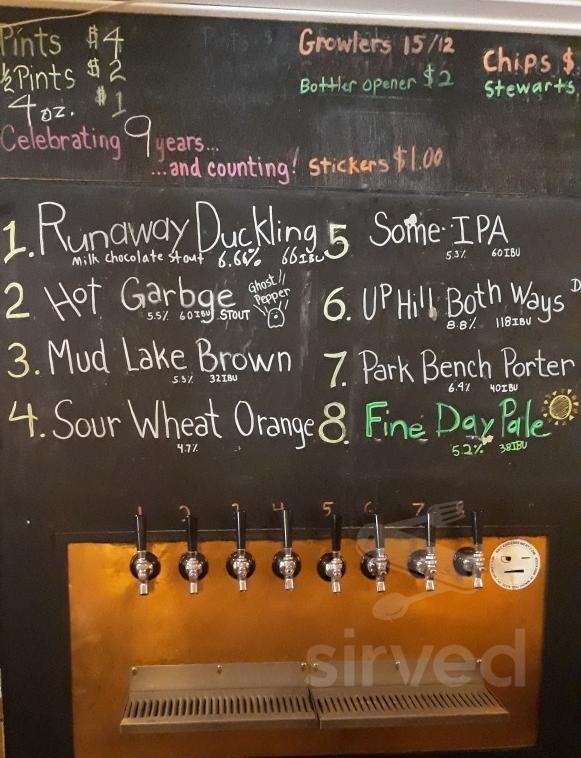 Pints $4
½ Pints $2
4 oz. $1
Growlers 15/12
Bottler opener $2
Chips $
Stewarts
Celebrating 9 years...
...and counting! Stickers $1.00
1. Runaway Duckling
Milk chocolate stout 6.66% 66IBU
2 Hot Garbge
5.5% 60IBU STOUT
Ghost
Pepper
3. Mud Lake Brown
5.5% 32IBU
4. Sour Wheat Orange
4.7%
5 Some IPA
5.3% 60IBU
6. UP Hill Both Ways
8.8% 118IBU
7. Park Bench Porter
6.4% 40IBU
8. Fine Day Pale
5.2% 38IBU
1 2 3 4 5 6 7 8
sirved